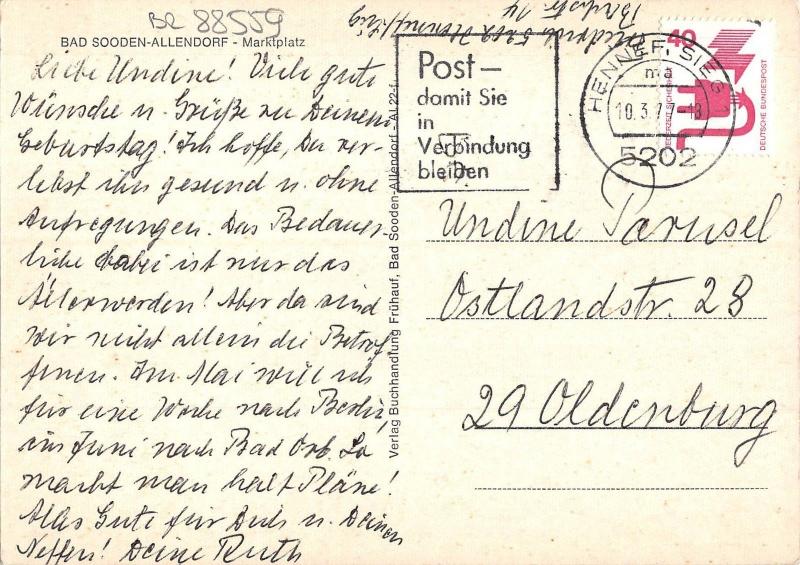 BR 88559
BAD SOODEN-ALLENDORF - Marktplatz
Liebe Undine! Viele gute
Wünsche u. Grüße zu Deinem
Geburtstag! Ich hoffe, Du ver-
lebst ihn gesund u. ohne
Aufregungen. Das Bedauer-
liche dabei ist nur das
Älterwerden! Aber da sind
wir nicht allein die Betrof-
fenen. Im Mai will ich
für eine Woche nach Berlin,
im Juni nach Bad Orb. So
macht man halt Pläne!
Alles Gute für Dich u. Deinen
Neffen! Deine Ruth
Verlag Buchhandlung Frühauf, Bad Sooden-Allendorf - AL 22-f
5202 Hennef/Sieg
Post-
damit Sie
in
Verbindung
bleiben
HENNEF, SIEG
ma
10.3.77-18
5202
40
JEDERZEIT SICHERHEIT
DEUTSCHE BUNDESPOST
Undine Parusel
Ostlandstr. 23
29 Oldenburg